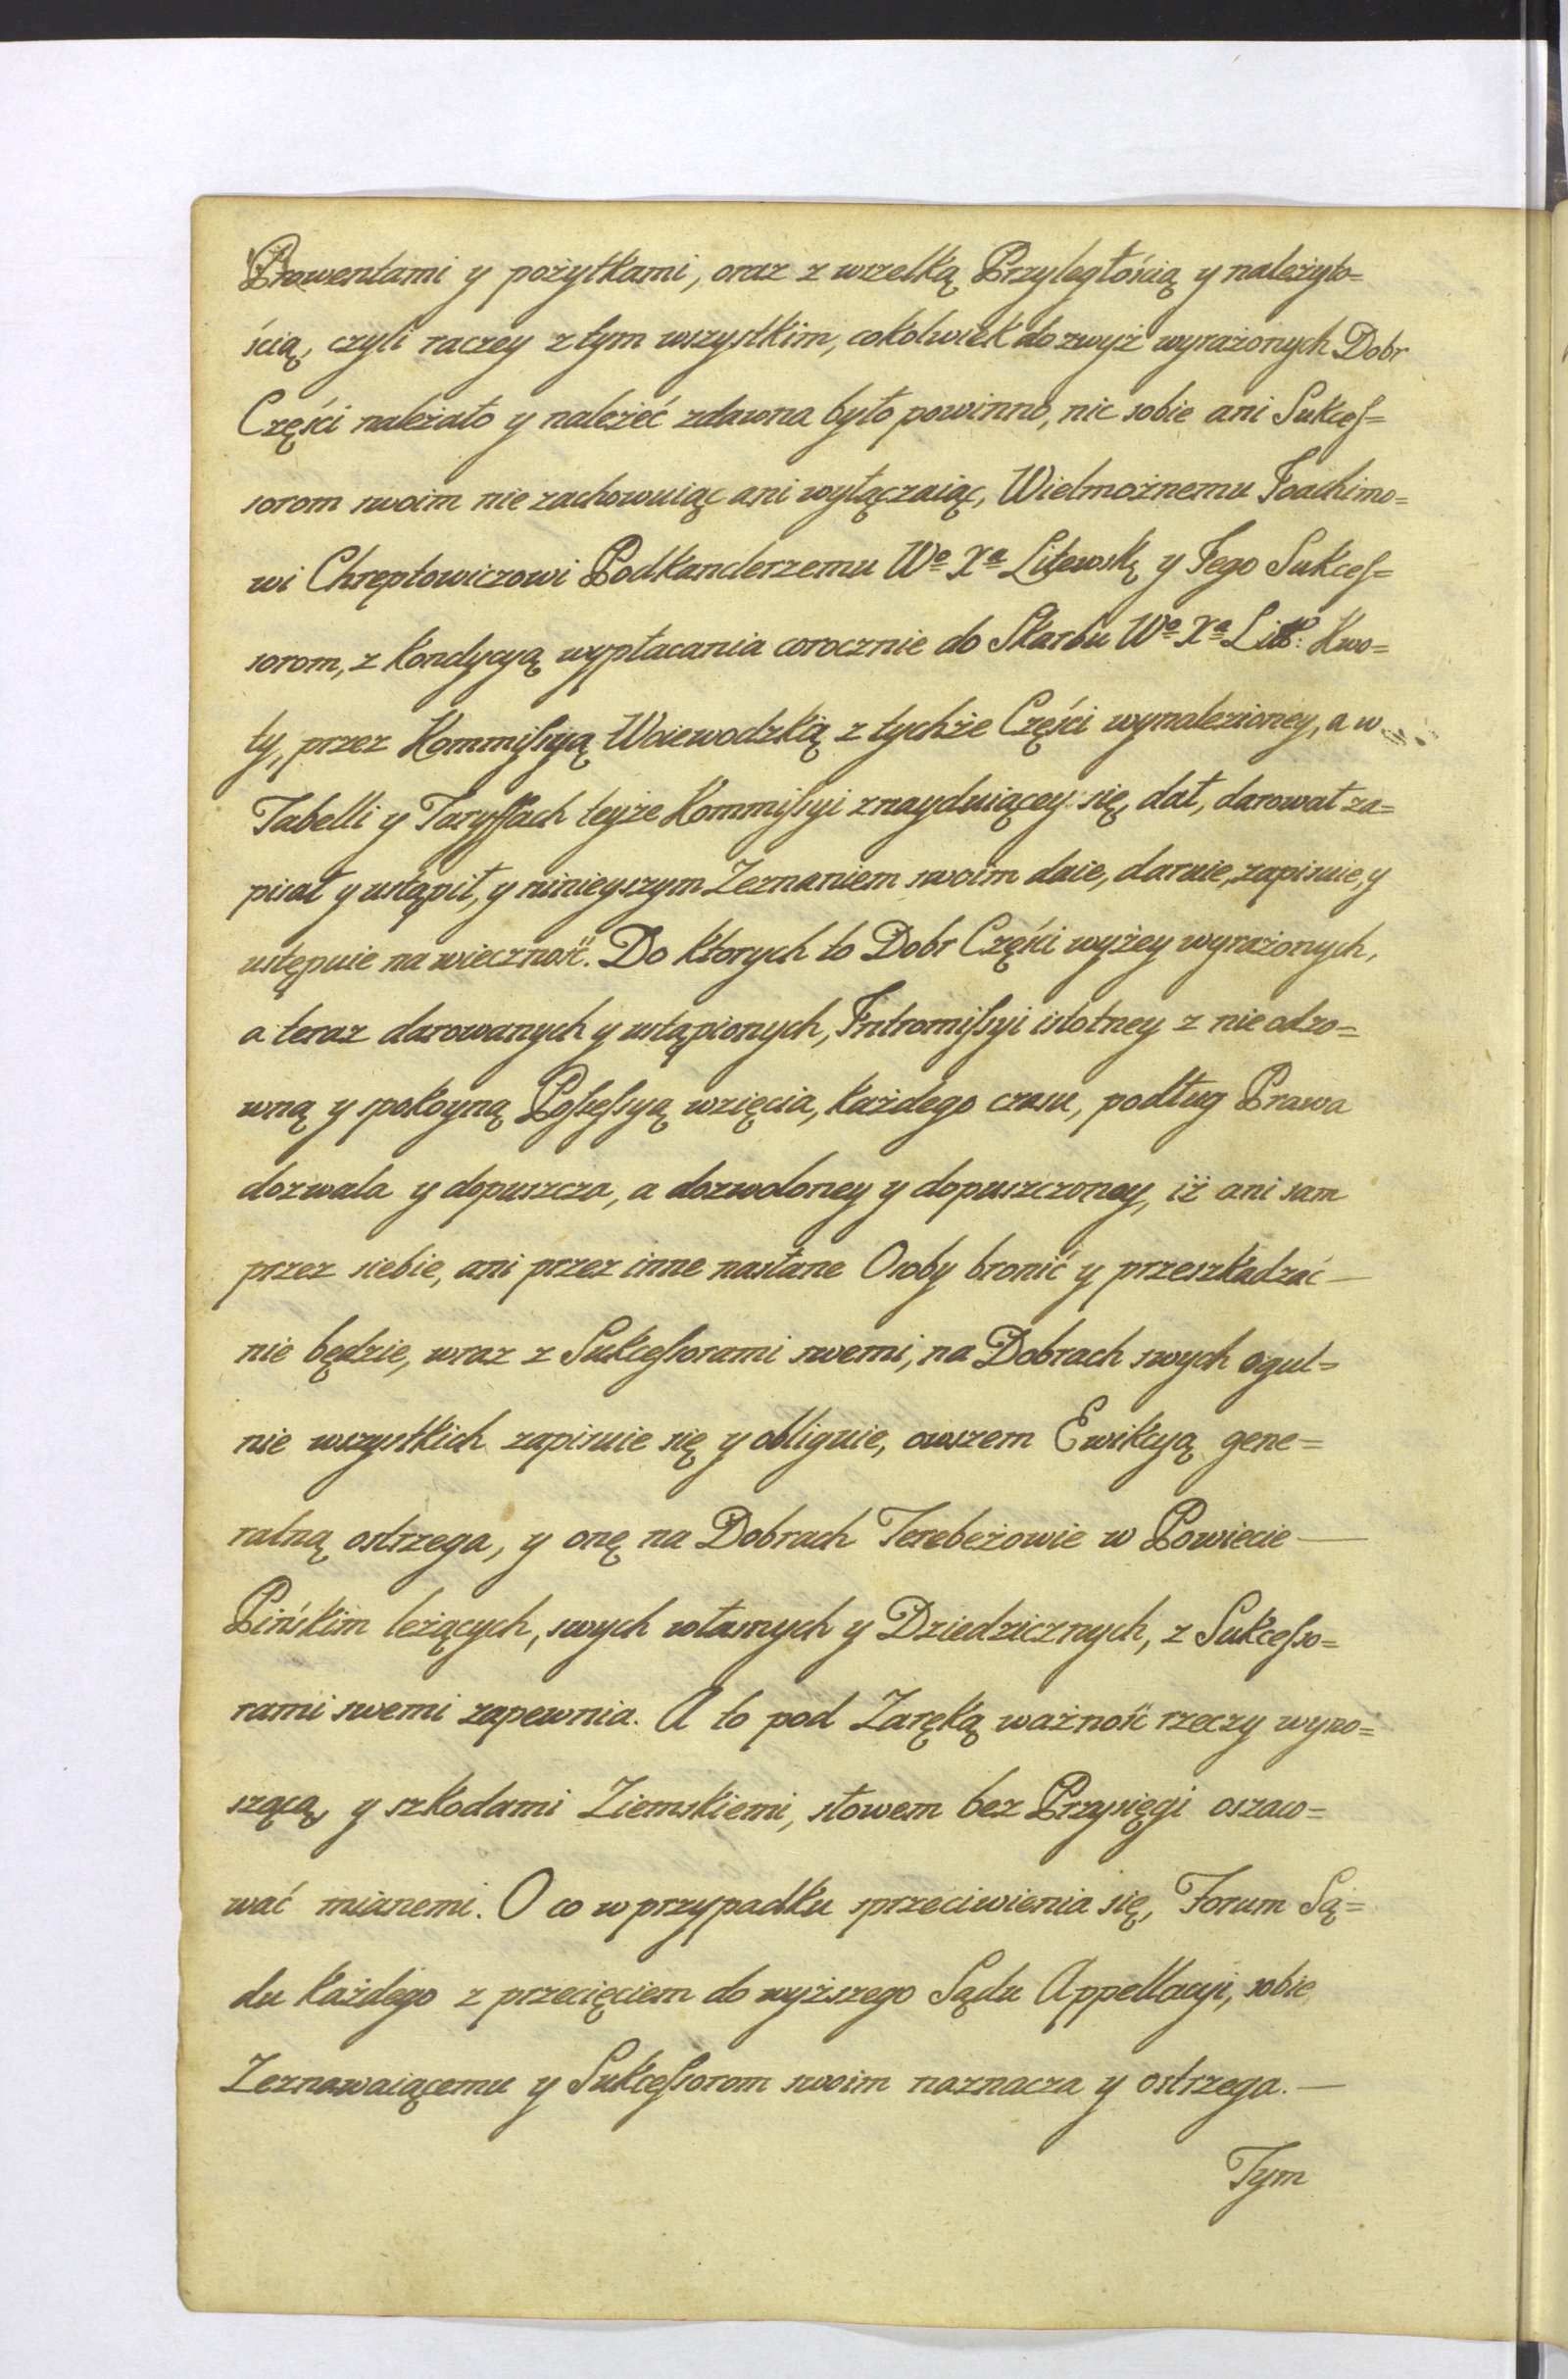 Prowentami y pożytkami, oraz z wszelką Przyległością y należyto=
ścią, czyli raczey z tym wszystkim, cokolwiek do zwyż wyrażonych Dobr
Części należało y należeć zdawna było powinno, nic sobie ani Sukceſ=
sorom swoim nie zachowuiąc ani wyłączaiąc, Wielmożnemu Joachimo=
wi Chreptowiczowi Podkanclerzemu Wº Xª Litewskº y Jego Sukceſ=
sorom, z kondycyą wypłacania corocznie do Skarbu Wº Xª Littº: Kwo=
ty, przez Kommiſsyą Woiewodzką z tychże Części wynalezioney, a w
Tabelli y Taryffach teyże Kommiſsyi znayduiącey się, dał, darował za=
pisał y ustąpił, y ninieyszym Zeznaniem swoim daie, daruie, zapisuie, y
ustępuie na wieczność. Do ktorych to Dobr Części wyżey wyrażonych,
a teraz darowanych y ustąpionych, Intromiſsyi istotney z nie odzo=
wną y spokoyną Poſseſsyą wzięcia, każdego czasu, podług Prawa
dozwala y dopuszcza, a dozwoloney y dopuszczoney, iż ani sam
przez siebie, ani przez inne nasłane Osoby bronić y przeszkadzać —
nie będzie, wraz z Sukceſsorami swemi, na Dobrach swych ogul=
nie wszystkich zapisuie się y obliguie, owszem Ewikcyą gene=
ralną ostrzega, y onę na Dobrach Terebeżowie w Powiecie —
Pińskim leżących, swych własnych y Dziedzicznych, z Sukceſso=
rami swemi zapewnia. A to pod Zaręką ważność rzeczy wyno=
szącą, y szkodami Ziemskiemi, słowem bez Przysięgi oszaco=
wać mianemi. O co w przypadku sprzeciwienia się, Forum Są=
du każdego z przecięciem do wyższego Sądu Appellacyi, sobie
Zeznawaiącemu y Sukceſsorom swoim naznacza y ostrzega. —
Tym